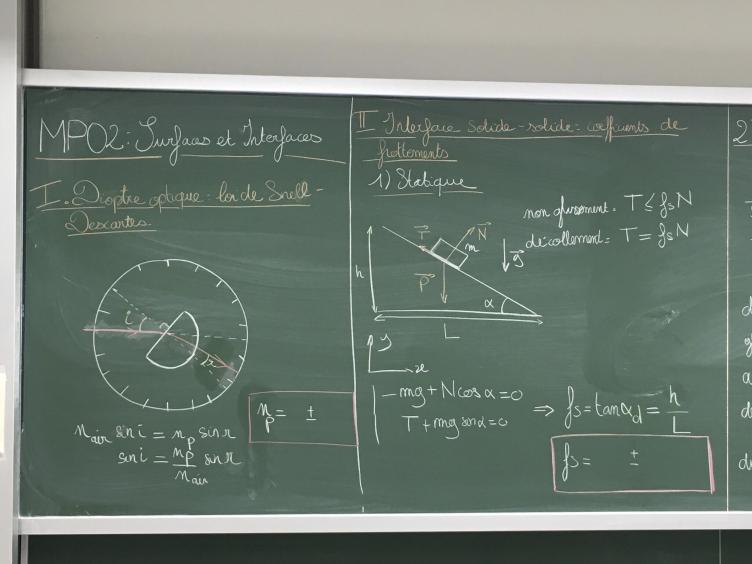 MP02: Surfaces et Interfaces
I. Dioptre optique: loi de Snell-
Descartes.
i
r
n air sin i = n p sin r
sin i = n p / n air sin r
n p = ±
II Interface solide-solide: coefficients de
frottements
1) Statique
non glissement: T ≤ fs N
décollement: T = fs N
T
N
m
g
P
h
α
L
y
x
-mg + N cos α = 0
T + mg sin α = 0
⇒ fs = tan αd = h / L
fs = ±
2
d
g
a
d
d